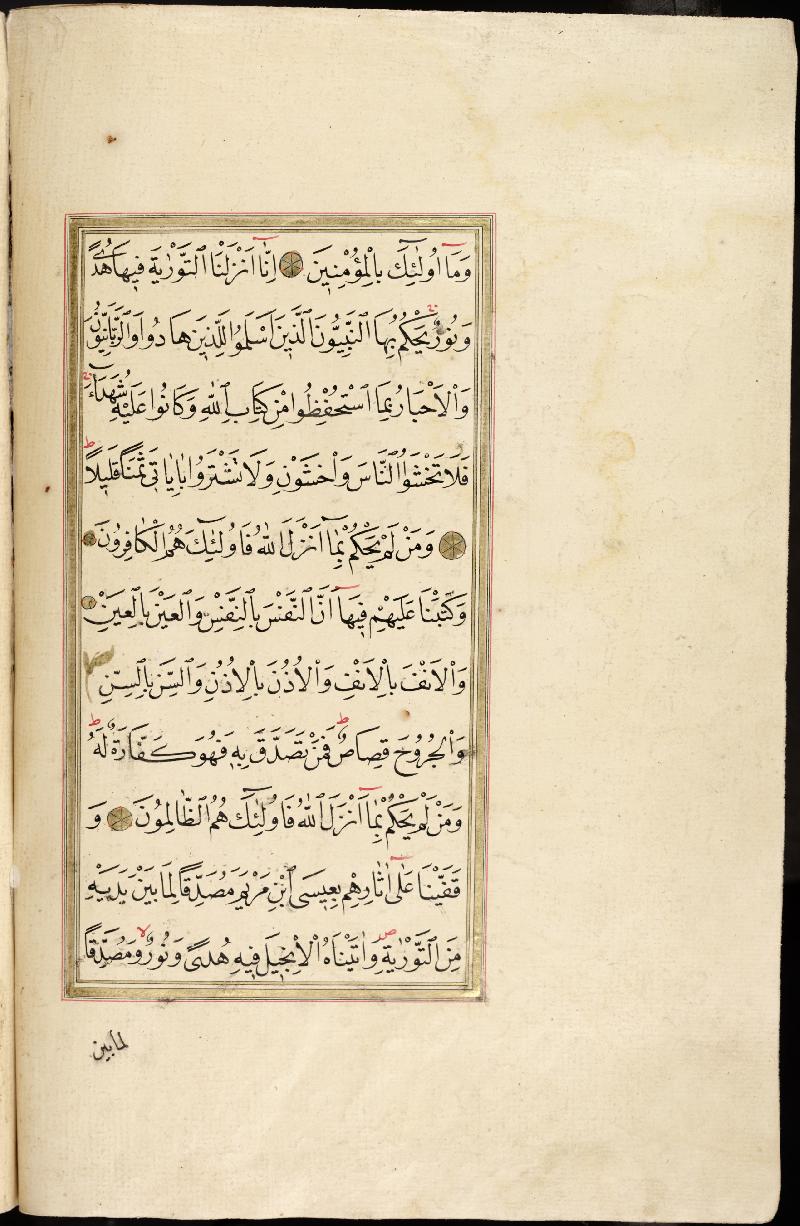 وَمَٓا اُولٰٓئِكَ بِالْمُؤْمِنِينَ اِنَّٓا اَنْزَلْنَا التَّوْرٰيةَ فِيهَا هُدًى
وَنُورٌ يَحْكُمُ بِهَا النَّبِيُّونَ الَّذِينَ اَسْلَمُوا لِلَّذِينَ هَادُوا وَالرَّبَّانِيُّونَ
وَالْاَحْبَارُ بِمَا اسْتُحْفِظُوا مِنْ كِتَابِ اللّٰهِ وَكَانُوا عَلَيْهِ شُهَدَٓاءَ
فَلَا تَخْشَوُا النَّاسَ وَاخْشَوْنِ وَلَا تَشْتَرُوا بِاٰيَاتِي ثَمَنًا قَلِيلًا ط
وَمَنْ لَمْ يَحْكُمْ بِمَٓا اَنْزَلَ اللّٰهُ فَاُولٰٓئِكَ هُمُ الْكَافِرُونَ
وَكَتَبْنَا عَلَيْهِمْ فِيهَٓا اَنَّ النَّفْسَ بِالنَّفْسِ وَالْعَيْنَ بِالْعَيْنِ
وَالْاَنْفَ بِالْاَنْفِ وَالْاُذُنَ بِالْاُذُنِ وَالسِّنَّ بِالسِّنِّ
وَالْجُرُوحَ قِصَاصٌ ط فَمَنْ تَصَدَّقَ بِهِ فَهُوَ كَفَّارَةٌ لَهُ ط
وَمَنْ لَمْ يَحْكُمْ بِمَٓا اَنْزَلَ اللّٰهُ فَاُولٰٓئِكَ هُمُ الظَّالِمُونَ وَ
قَفَّيْنَا عَلٰٓى اٰثَارِهِمْ بِعِيسَى ابْنِ مَرْيَمَ مُصَدِّقًا لِمَا بَيْنَ يَدَيْهِ
مِنَ التَّوْرٰيةِ ص وَاٰتَيْنَاهُ الْاِنْجِيلَ فِيهِ هُدًى وَنُورٌ لا وَمُصَدِّقًا
لما بين